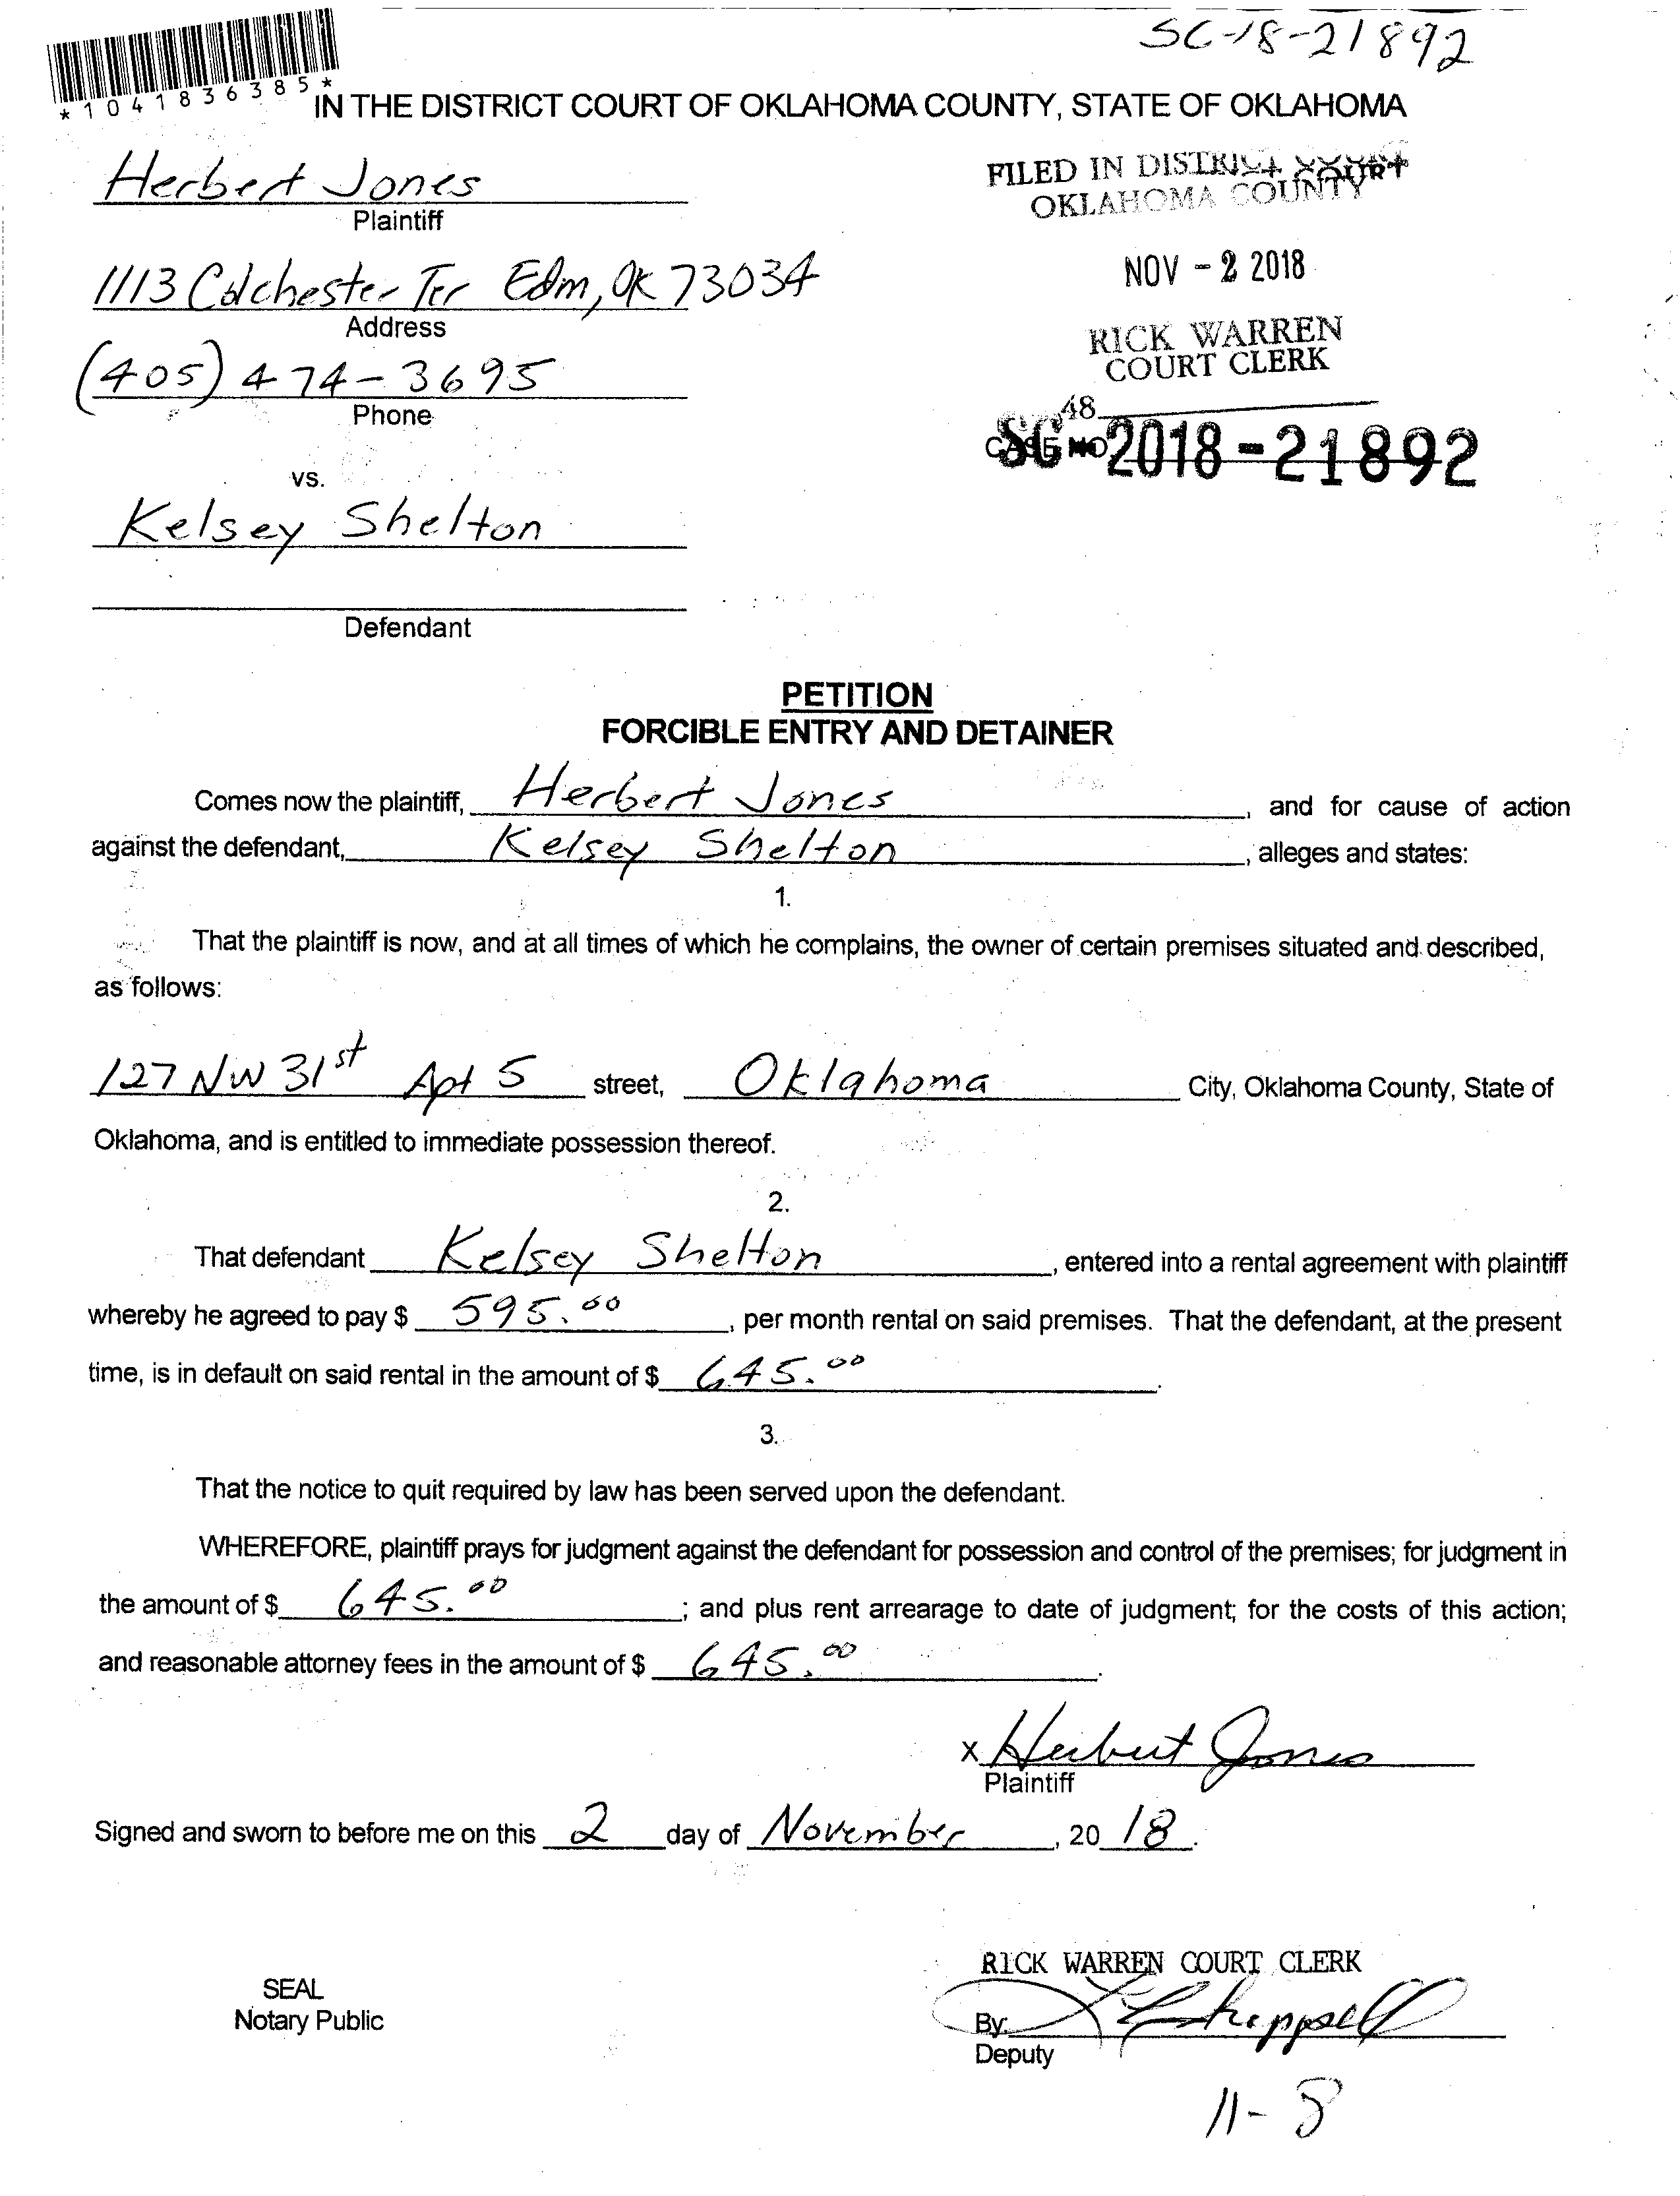 SC-18-21892
*1041836385*
IN THE DISTRICT COURT OF OKLAHOMA COUNTY, STATE OF OKLAHOMA
Herbert Jones
Plaintiff
1113 Colchester Ter Edm, OK 73034
Address
(405) 474-3695
Phone
vs.
Kelsey Shelton
Defendant
FILED IN DISTRICT COURT
OKLAHOMA COUNTY
NOV - 2 2018
RICK WARREN
COURT CLERK
48
SC-2018-21892
PETITION
FORCIBLE ENTRY AND DETAINER
Comes now the plaintiff, Herbert Jones, and for cause of action
against the defendant, Kelsey Shelton, alleges and states:
1.
That the plaintiff is now, and at all times of which he complains, the owner of certain premises situated and described,
as follows:
127 NW 31st Apt 5 street, Oklahoma City, Oklahoma County, State of
Oklahoma, and is entitled to immediate possession thereof.
2.
That defendant Kelsey Shelton, entered into a rental agreement with plaintiff
whereby he agreed to pay $ 595.00, per month rental on said premises. That the defendant, at the present
time, is in default on said rental in the amount of $ 645.00.
3.
That the notice to quit required by law has been served upon the defendant.
WHEREFORE, plaintiff prays for judgment against the defendant for possession and control of the premises; for judgment in
the amount of $ 645.00; and plus rent arrearage to date of judgment; for the costs of this action;
and reasonable attorney fees in the amount of $ 645.00.
x Herbert Jones
Plaintiff
Signed and sworn to before me on this 2 day of November, 2018.
SEAL
Notary Public
RICK WARREN COURT CLERK
By:
Deputy
11-8